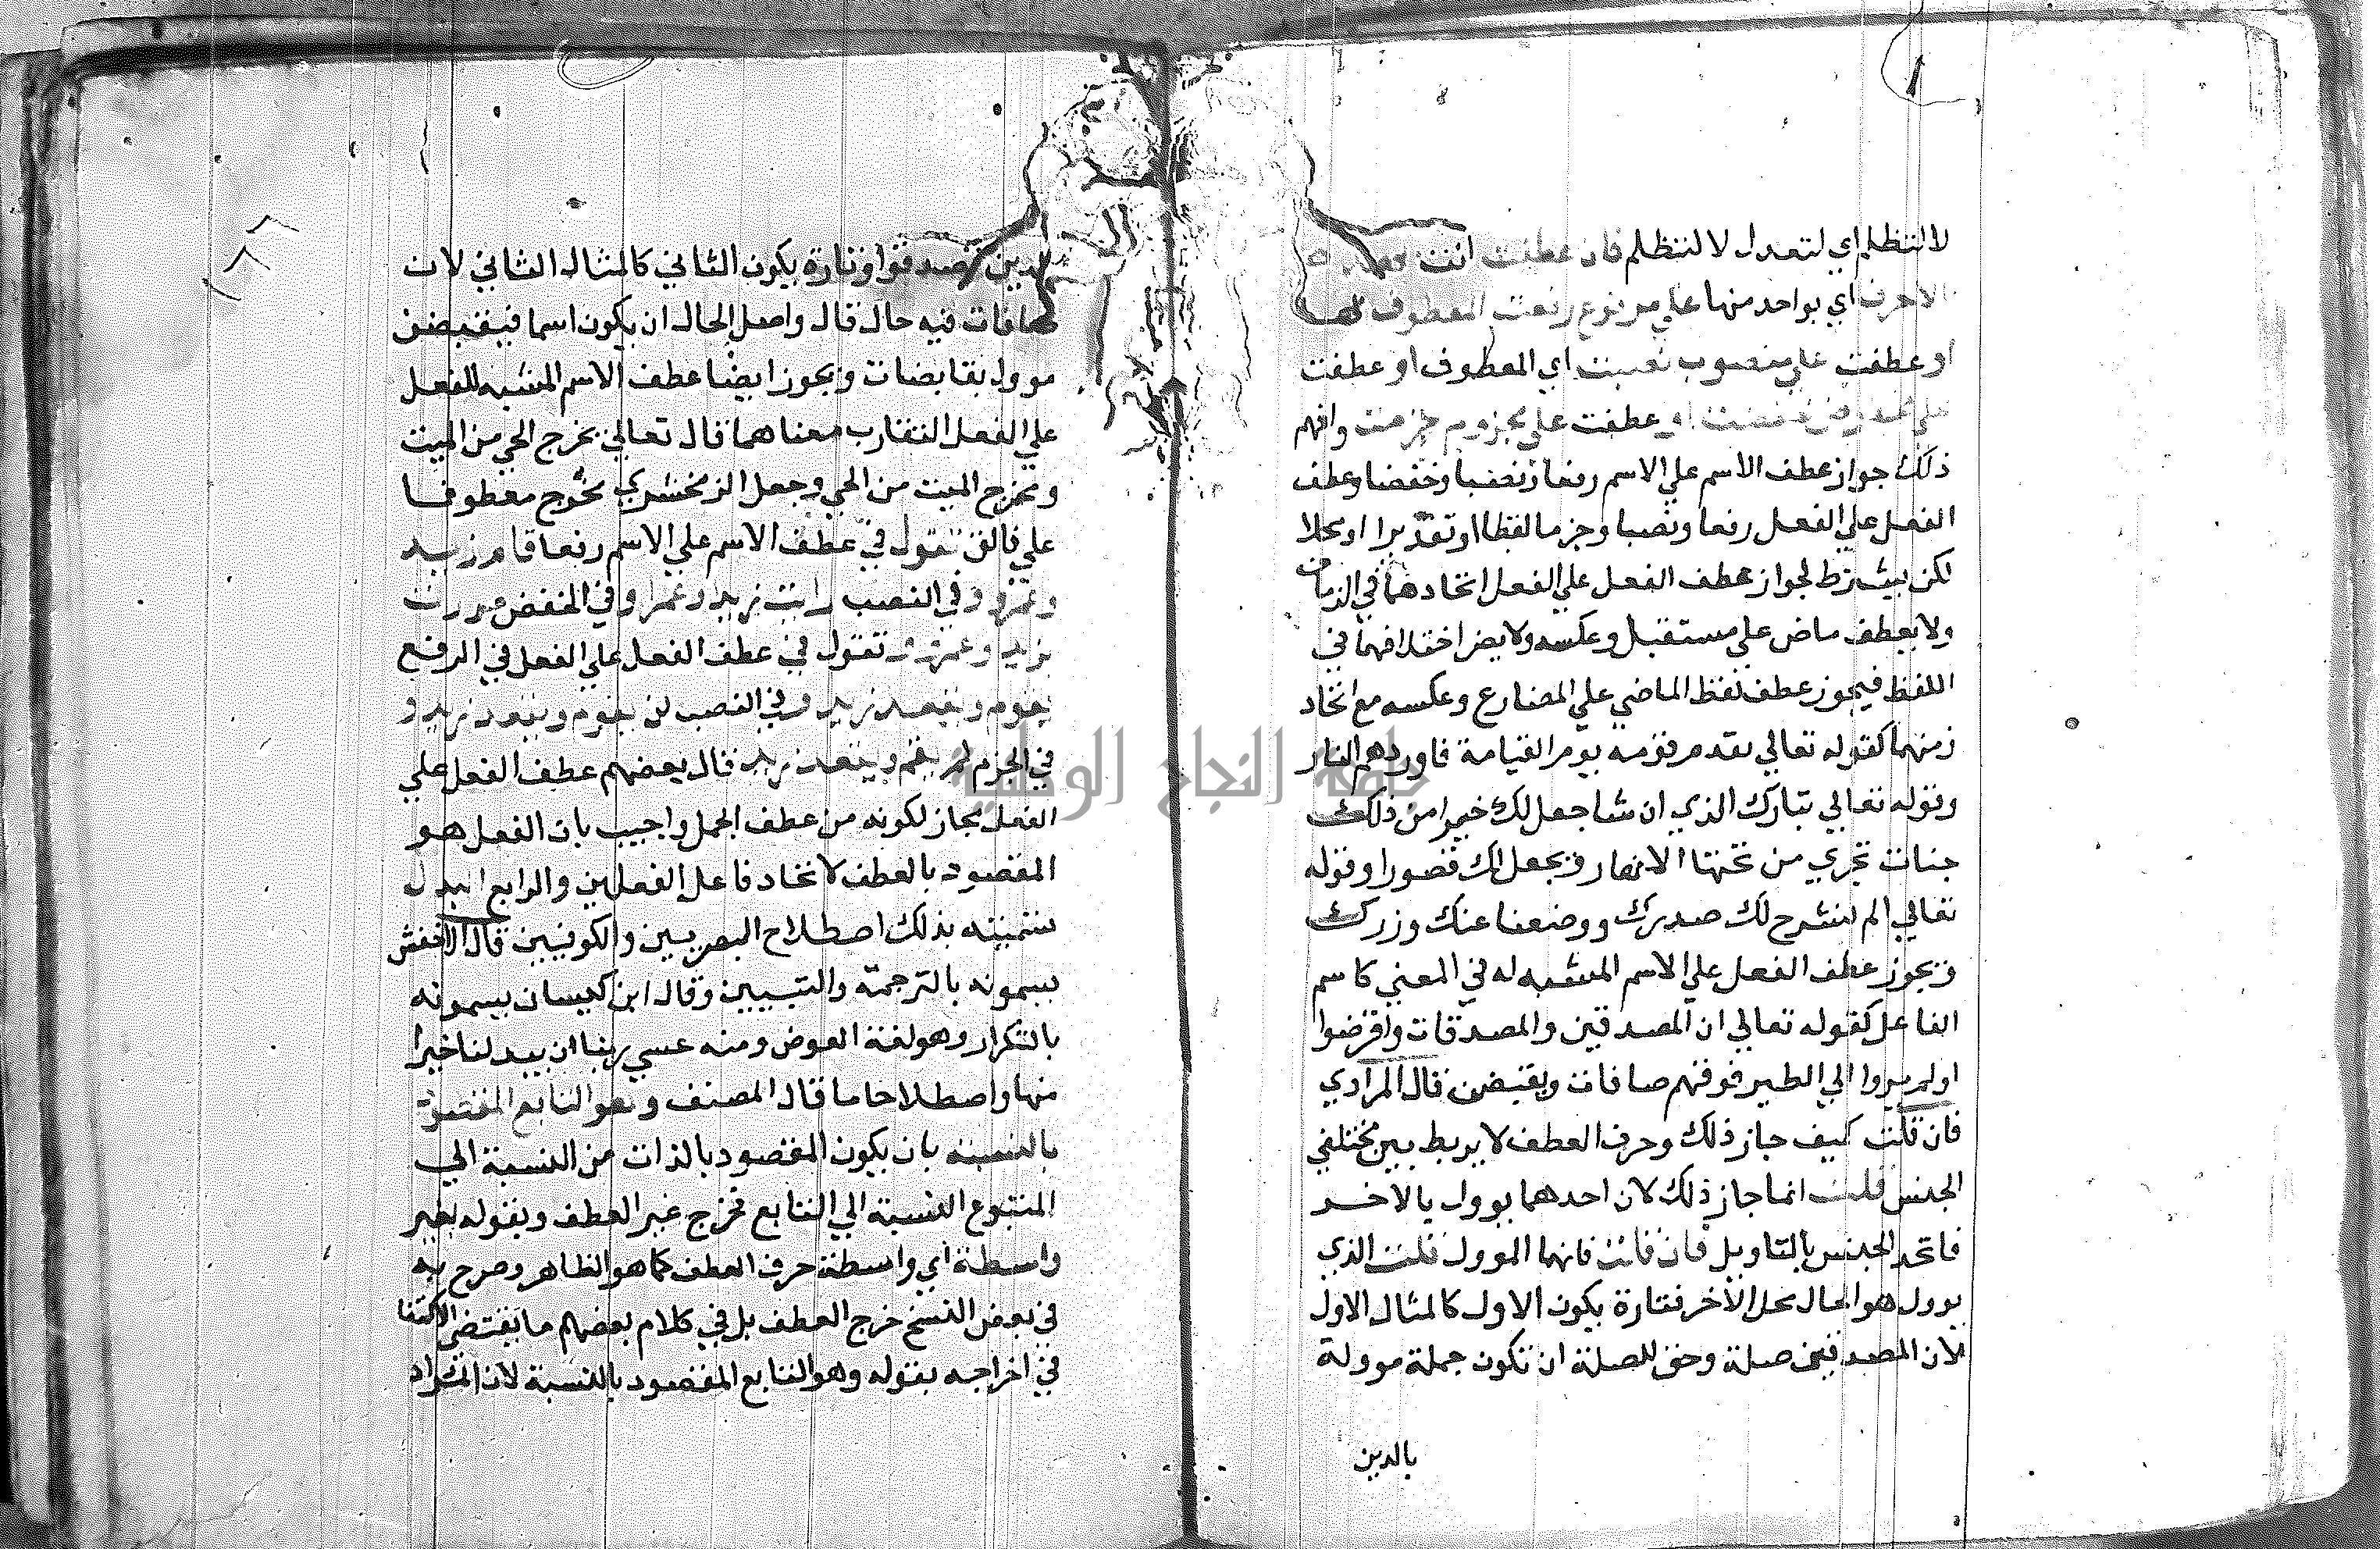 لا لتظلم اي لتعدل لا لتظلم فان عطفت انت
الاحرف اي بواحد منها علي مرفوع رفعت المعطوف
او عطفت علي منصوب نصبت اي المعطوف او عطفت
علي مخفوض خفضت او عطفت علي مجزوم جزمت وافهم
ذلك جواز عطف الاسم علي الاسم رفعا ونصبا وخفضا وعطف
الفعل علي الفعل رفعا ونصبا وجزما لفظا او تقديرا او محلا
لكن يشترط لجواز عطف الفعل علي الفعل اتحادهما في الزمان
ولا يعطف ماض علي مستقبل وعكسه ولا يضر اختلافهما في
اللفظ فيجوز عطف لفظ الماضي علي المضارع وعكسه مع اتحاد
زمنهما كقوله تعالي يقدم قومه يوم القيامة فاوردهم النار
وقوله تعالي تبارك الذي ان شا جعل لك خيرا من ذلك
جنات تجري من تحتها الانهار ويجعل لك قصورا وقوله
تعالي الم نشرح لك صدرك ووضعنا عنك وزرك
ويجوز عطف الفعل علي الاسم المشبه له في المعني كاسم
الفاعل كقوله تعالي ان المصدقين والمصدقات واقرضوا
اولم يروا الي الطير فوقهم صافات ويقبضن قال المرادي
فان قلت كيف جاز ذلك وحرف العطف لا يربط بين مختلفي
الجنس قلت انما جاز ذلك لان احدهما يوول بالاخر
فاتحد الجنس بالتاويل فان قلت فايهما الموول قلت الذي
يوول هو الحال محل الاخر فتارة يكون الاول كالمثال الاول
لان المصدقين صلة وحق للصلة ان تكون جملة موولة
بالدين
الدين تصدقوا وتارة يكون الثاني كالمثال الثاني لان
صافات فيه حال قال واصل الحال ان يكون اسما فيقبضن
موول بقابضات ويجوز ايضا عطف الاسم المشبه للفعل
علي الفعل لتقارب معناهما قال تعالي يخرج الحي من الميت
ومخرج الميت من الحي وجعل الزمخشري مخرج معطوفا
علي فالق تقول في عطف الاسم علي الاسم رفعا قام زيد
وعمرو وفي النصب رايت زيدا وعمرا وفي الخفض مررت
بزيد وعمرو تقول في عطف الفعل علي الفعل في الرفع
يقوم ويقعد زيد وفي النصب لن يقوم ويقعد زيد و
في الجزم لم يقم ويقعد زيد قال بعضهم عطف الفعل علي
الفعل مجاز لكونه من عطف الجمل واجيب بان الفعل هو
المقصود بالعطف لاتحاد فاعل الفعلين والرابع البدل
تسميته بذلك اصطلاح البصريين والكوفيين قال الاخفش
يسمونه بالترجمة والتبيين وقال ابن كيسان يسمونه
بالتكرار وهو لغة العوض ومنه عسي ربنا ان يبدلنا خيرا
منها واصطلاحا ما قال المصنف وهو التابع المقصود
بالنسبة بان يكون المقصود بالذات من النسبة الي
المتبوع النسبة الي التابع فخرج غير العطف وبقوله بغير
واسطة اي واسطة حرف العطف كما هو الظاهر وصرح به
في بعض النسخ خرج العطف بل في كلام بعضهم ما يقتضي الاكتفا
في اخراجه بقوله وهو التابع المقصود بالنسبة لان المراد
جامعة النجاح الوطنية